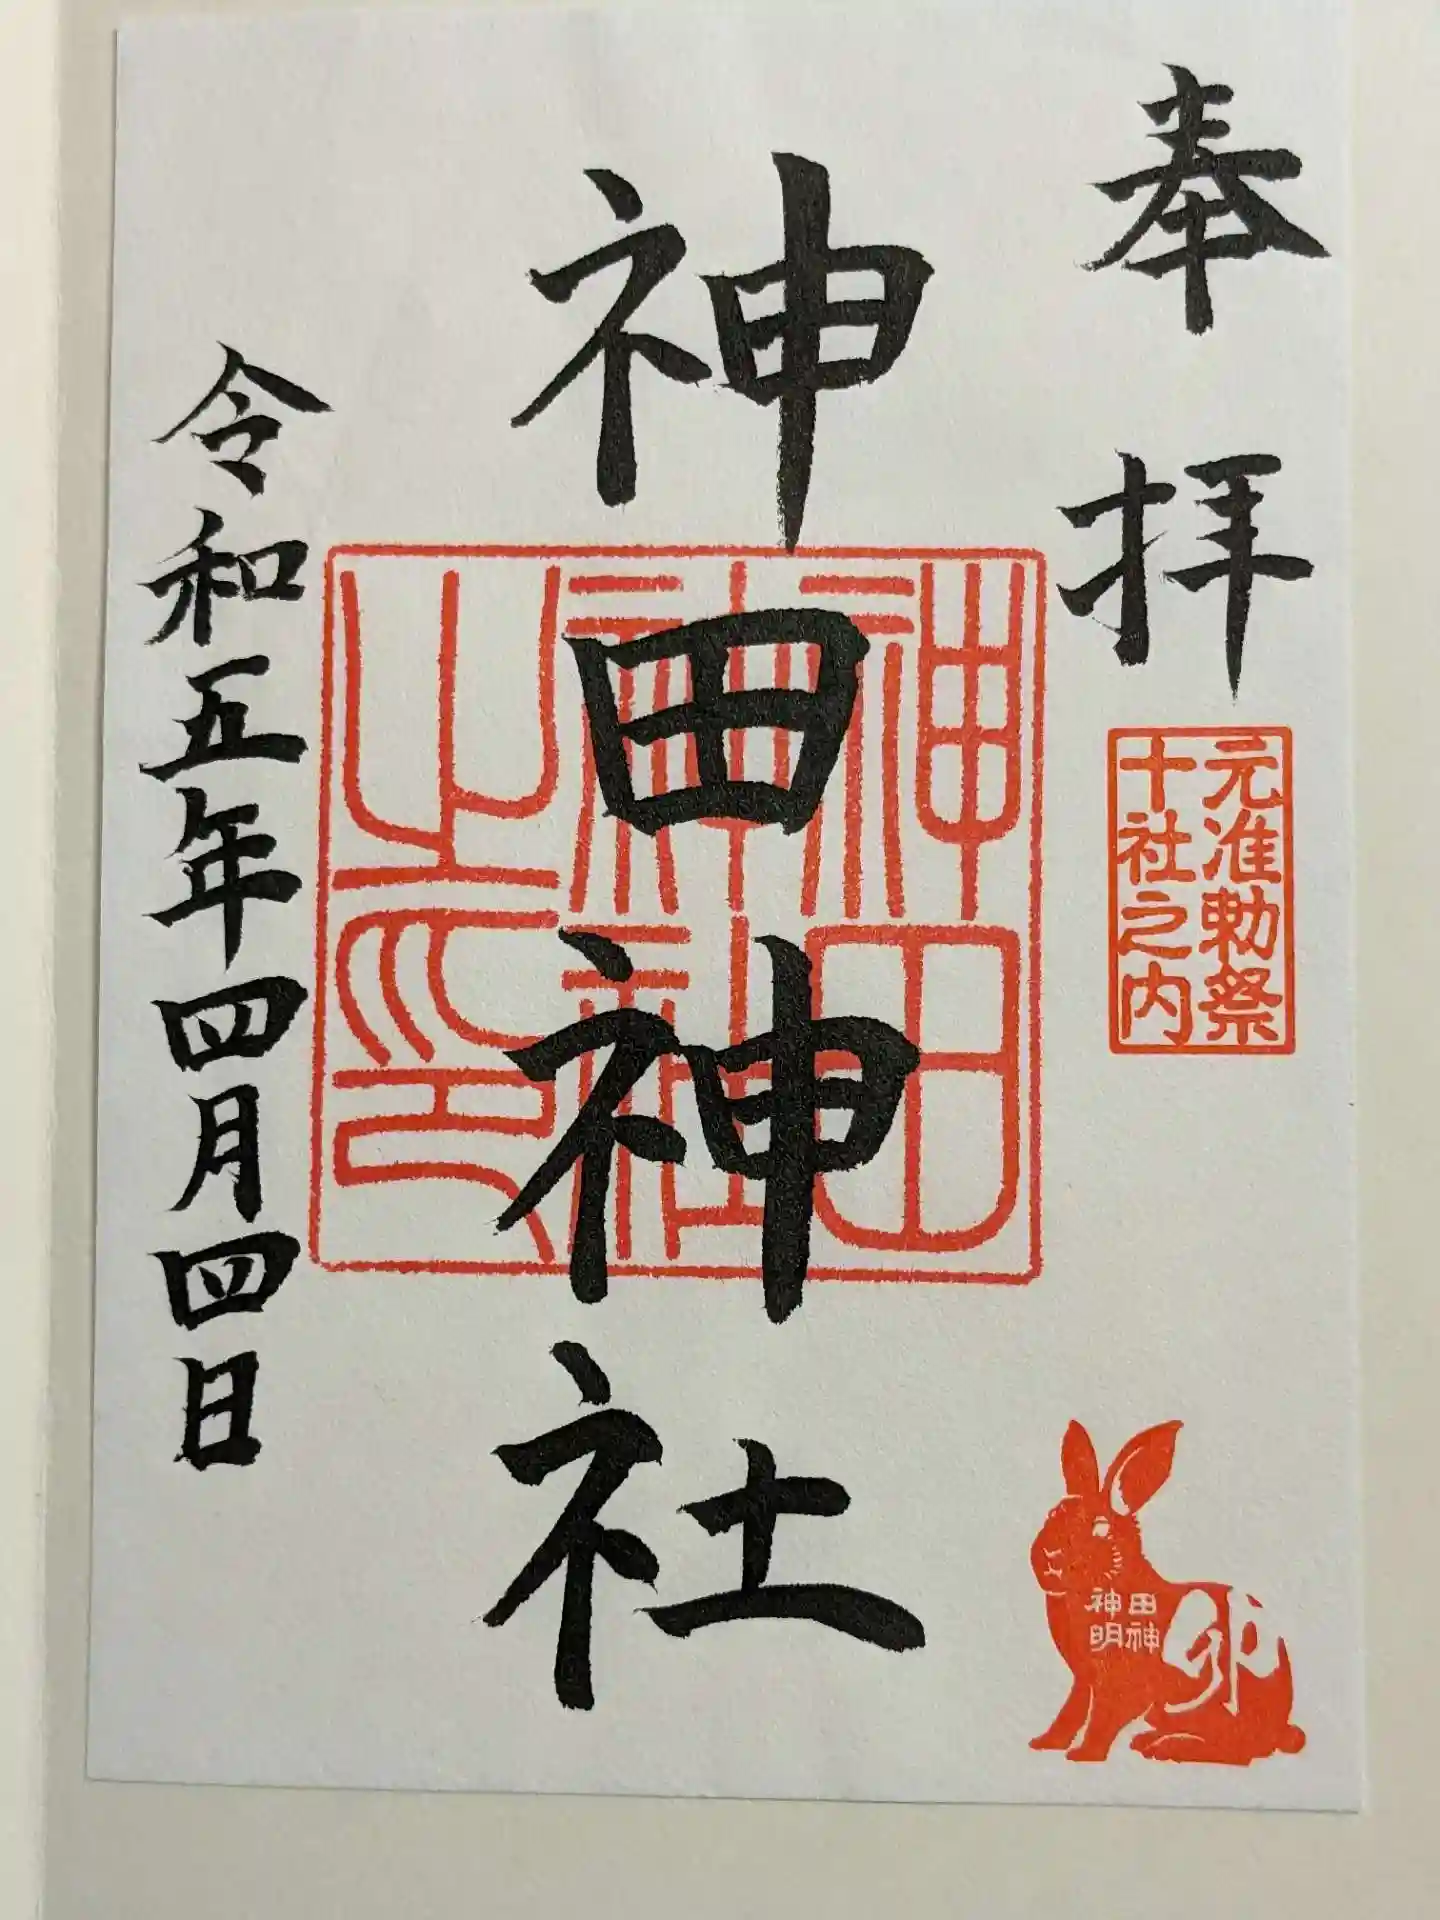 奉拝
元准勅祭
十社之内
神田神社
神田
神社
之印
卯
田神
神明
令和五年四月四日